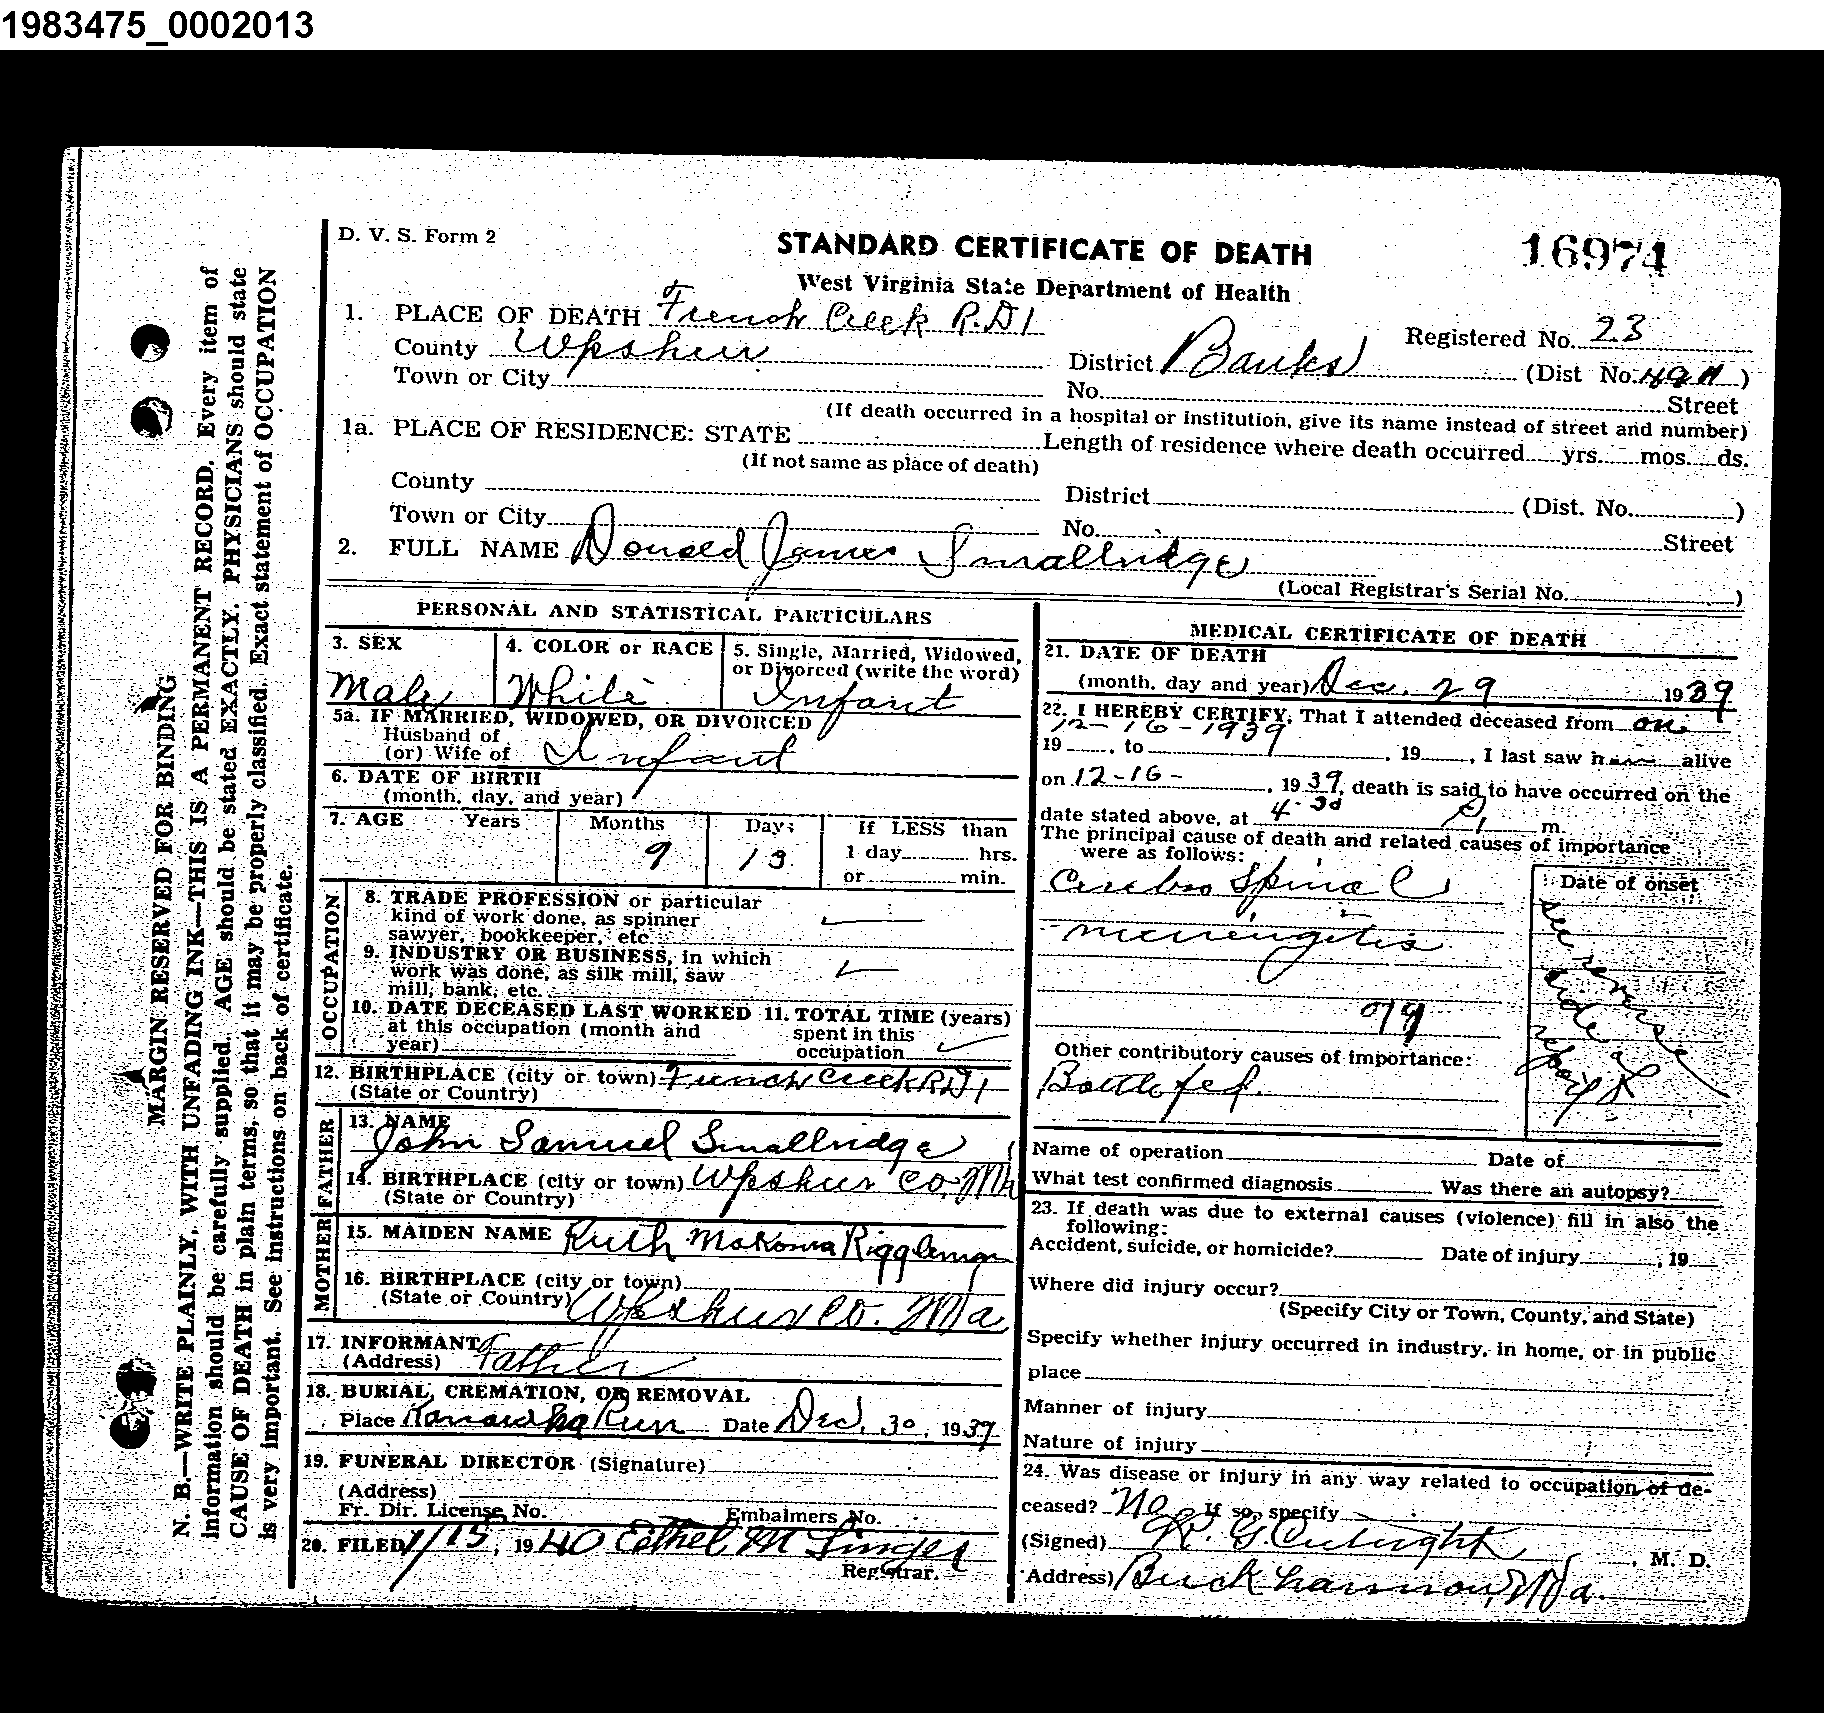 1983475_0002013
D. V. S. Form 2
STANDARD CERTIFICATE OF DEATH
16974
West Virginia State Department of Health
1. PLACE OF DEATH French Creek R.D 1
Registered No. 23
County Upshur District Banks (Dist No. 49 )
Town or City No. Street
(If death occurred in a hospital or institution, give its name instead of street and number)
1a. PLACE OF RESIDENCE: STATE Length of residence where death occurred yrs. mos. ds.
(If not same as place of death)
County District (Dist. No. )
Town or City No. Street
2. FULL NAME Donald James Smallridge
(Local Registrar's Serial No. )
PERSONAL AND STATISTICAL PARTICULARS
3. SEX Male
4. COLOR or RACE White
5. Single, Married, Widowed, or Divorced (write the word) Infant
5a. IF MARRIED, WIDOWED, OR DIVORCED
Husband of
(or) Wife of Infant
6. DATE OF BIRTH
(month, day, and year)
7. AGE Years Months Days If LESS than
9 13 1 day hrs.
or min.
OCCUPATION
8. TRADE PROFESSION or particular
kind of work done, as spinner
sawyer, bookkeeper, etc.
9. INDUSTRY OR BUSINESS, in which
work was done, as silk mill, saw
mill, bank, etc.
10. DATE DECEASED LAST WORKED
at this occupation (month and
year)
11. TOTAL TIME (years)
spent in this
occupation
12. BIRTHPLACE (city or town) French Creek R.D 1
(State or Country)
FATHER
13. NAME
John Samuel Smallridge
14. BIRTHPLACE (city or town) Upshur Co.
(State or Country)
MOTHER
15. MAIDEN NAME Ruth Makoma Riggleman
16. BIRTHPLACE (city or town)
(State or Country) Upshur Co. W Va
17. INFORMANT
(Address) Father
18. BURIAL, CREMATION, OR REMOVAL
Place Kanawha Run Date Dec. 30, 1939
19. FUNERAL DIRECTOR (Signature)
(Address)
Fr. Dir. License No. Embalmers No.
20. FILED 1/15, 1940 Ethel M Singer
Registrar.
MEDICAL CERTIFICATE OF DEATH
21. DATE OF DEATH
(month, day and year) Dec. 29 1939
22. I HEREBY CERTIFY, That I attended deceased from on
12-16-1939
19 , to , 19 , I last saw h alive
on 12-16- , 1939, death is said to have occurred on the
date stated above, at 4-30 P. m.
The principal cause of death and related causes of importance
were as follows:
Cerebro Spinal
meningitis
Date of onset
see reverse
side of
Other contributory causes of importance:
Bottle fed.
Name of operation Date of
What test confirmed diagnosis Was there an autopsy?
23. If death was due to external causes (violence) fill in also the
following:
Accident, suicide, or homicide? Date of injury , 19
Where did injury occur?
(Specify City or Town, County, and State)
Specify whether injury occurred in industry, in home, or in public
place
Manner of injury
Nature of injury
24. Was disease or injury in any way related to occupation of de-
ceased? No If so, specify
(Signed) K. G. Cutright , M. D.
Address) Buckhannon, W Va.
MARGIN RESERVED FOR BINDING
N. B.—WRITE PLAINLY, WITH UNFADING INK—THIS IS A PERMANENT RECORD. Every item of
information should be carefully supplied. AGE should be stated EXACTLY. PHYSICIANS should state
CAUSE OF DEATH in plain terms, so that it may be properly classified. Exact statement of OCCUPATION
is very important. See instructions on back of certificate.